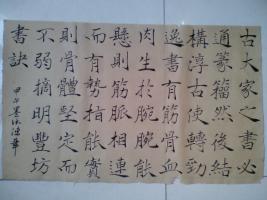 古大家之書必
通篆籀然後結
構淳古使轉勁
逸書有筋骨血
肉生於腕腕能
懸則筋脈相連
而有勢指能實
則骨體堅定而
不弱摘明豐坊
書訣
甲午